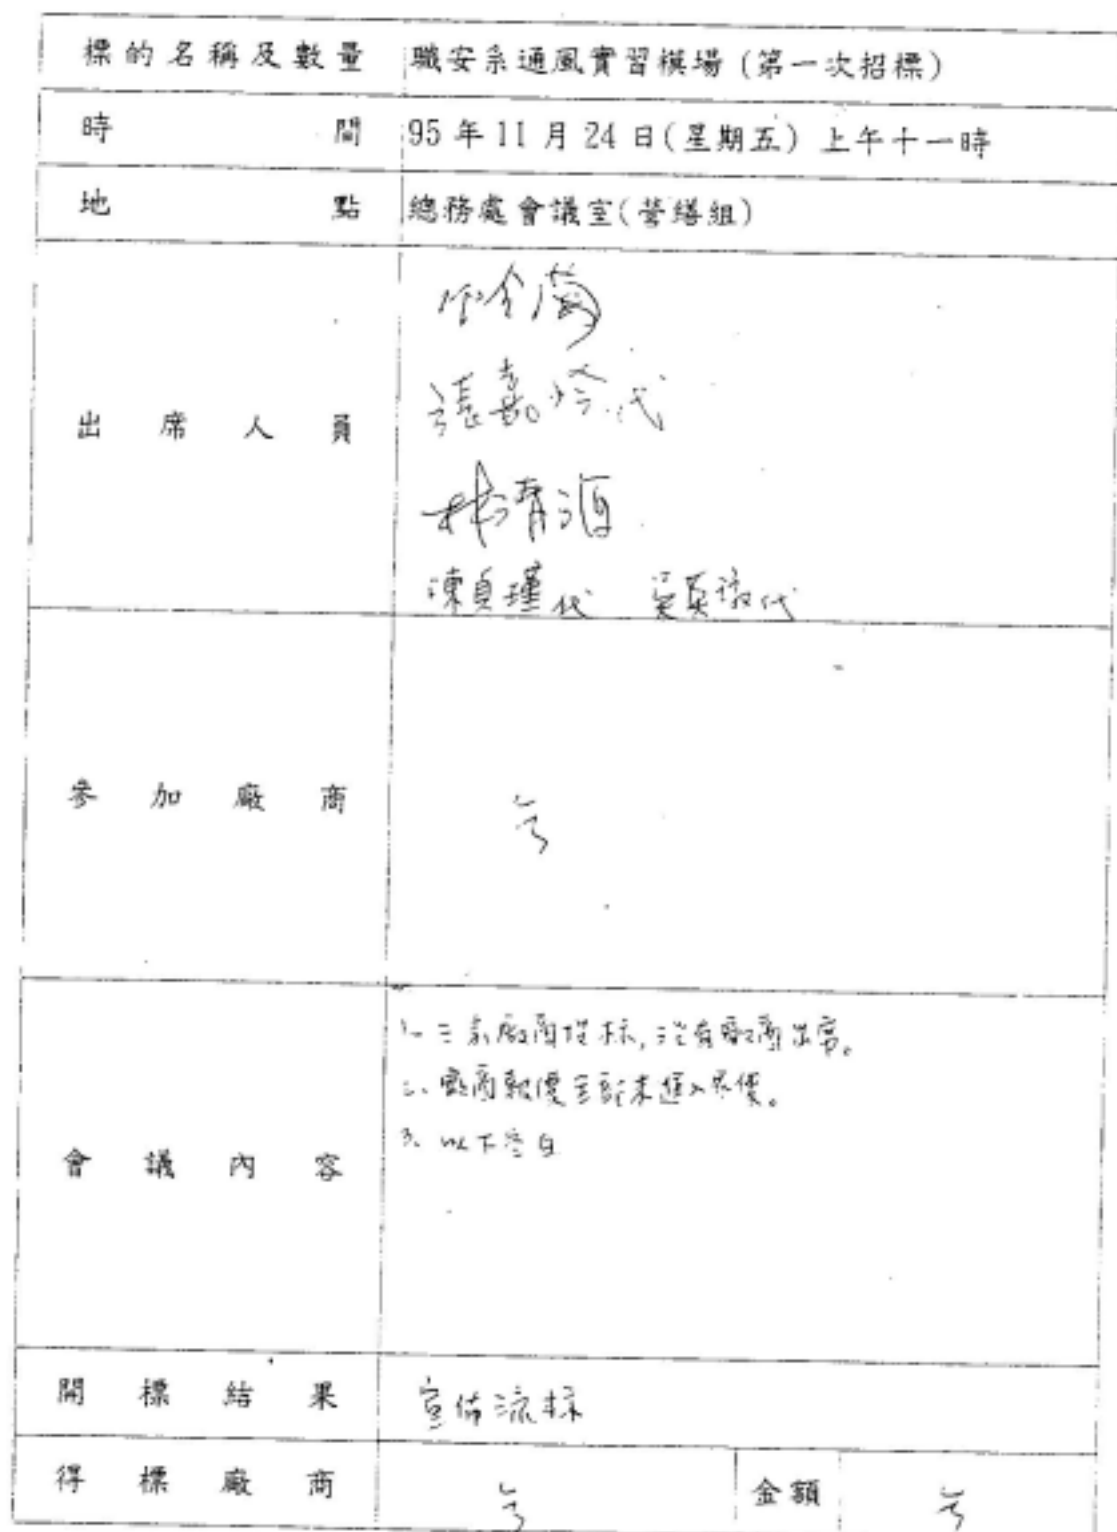 標的名稱及數量 職安系通風實習模場(第一次招標)
時間 95年11月24日(星期五) 上午十一時
地點 總務處會議室(營繕組)
出席人員
張嘉玲代
林清海
陳貞瑾代 吳英徵代
參加廠商 无
會議內容
1. 三家廠商投标,沒有廠商出席。
二、廠商報價全部未進入底價。
3. 以下空白
開標結果 宣佈流标
得標廠商 无 金額 无